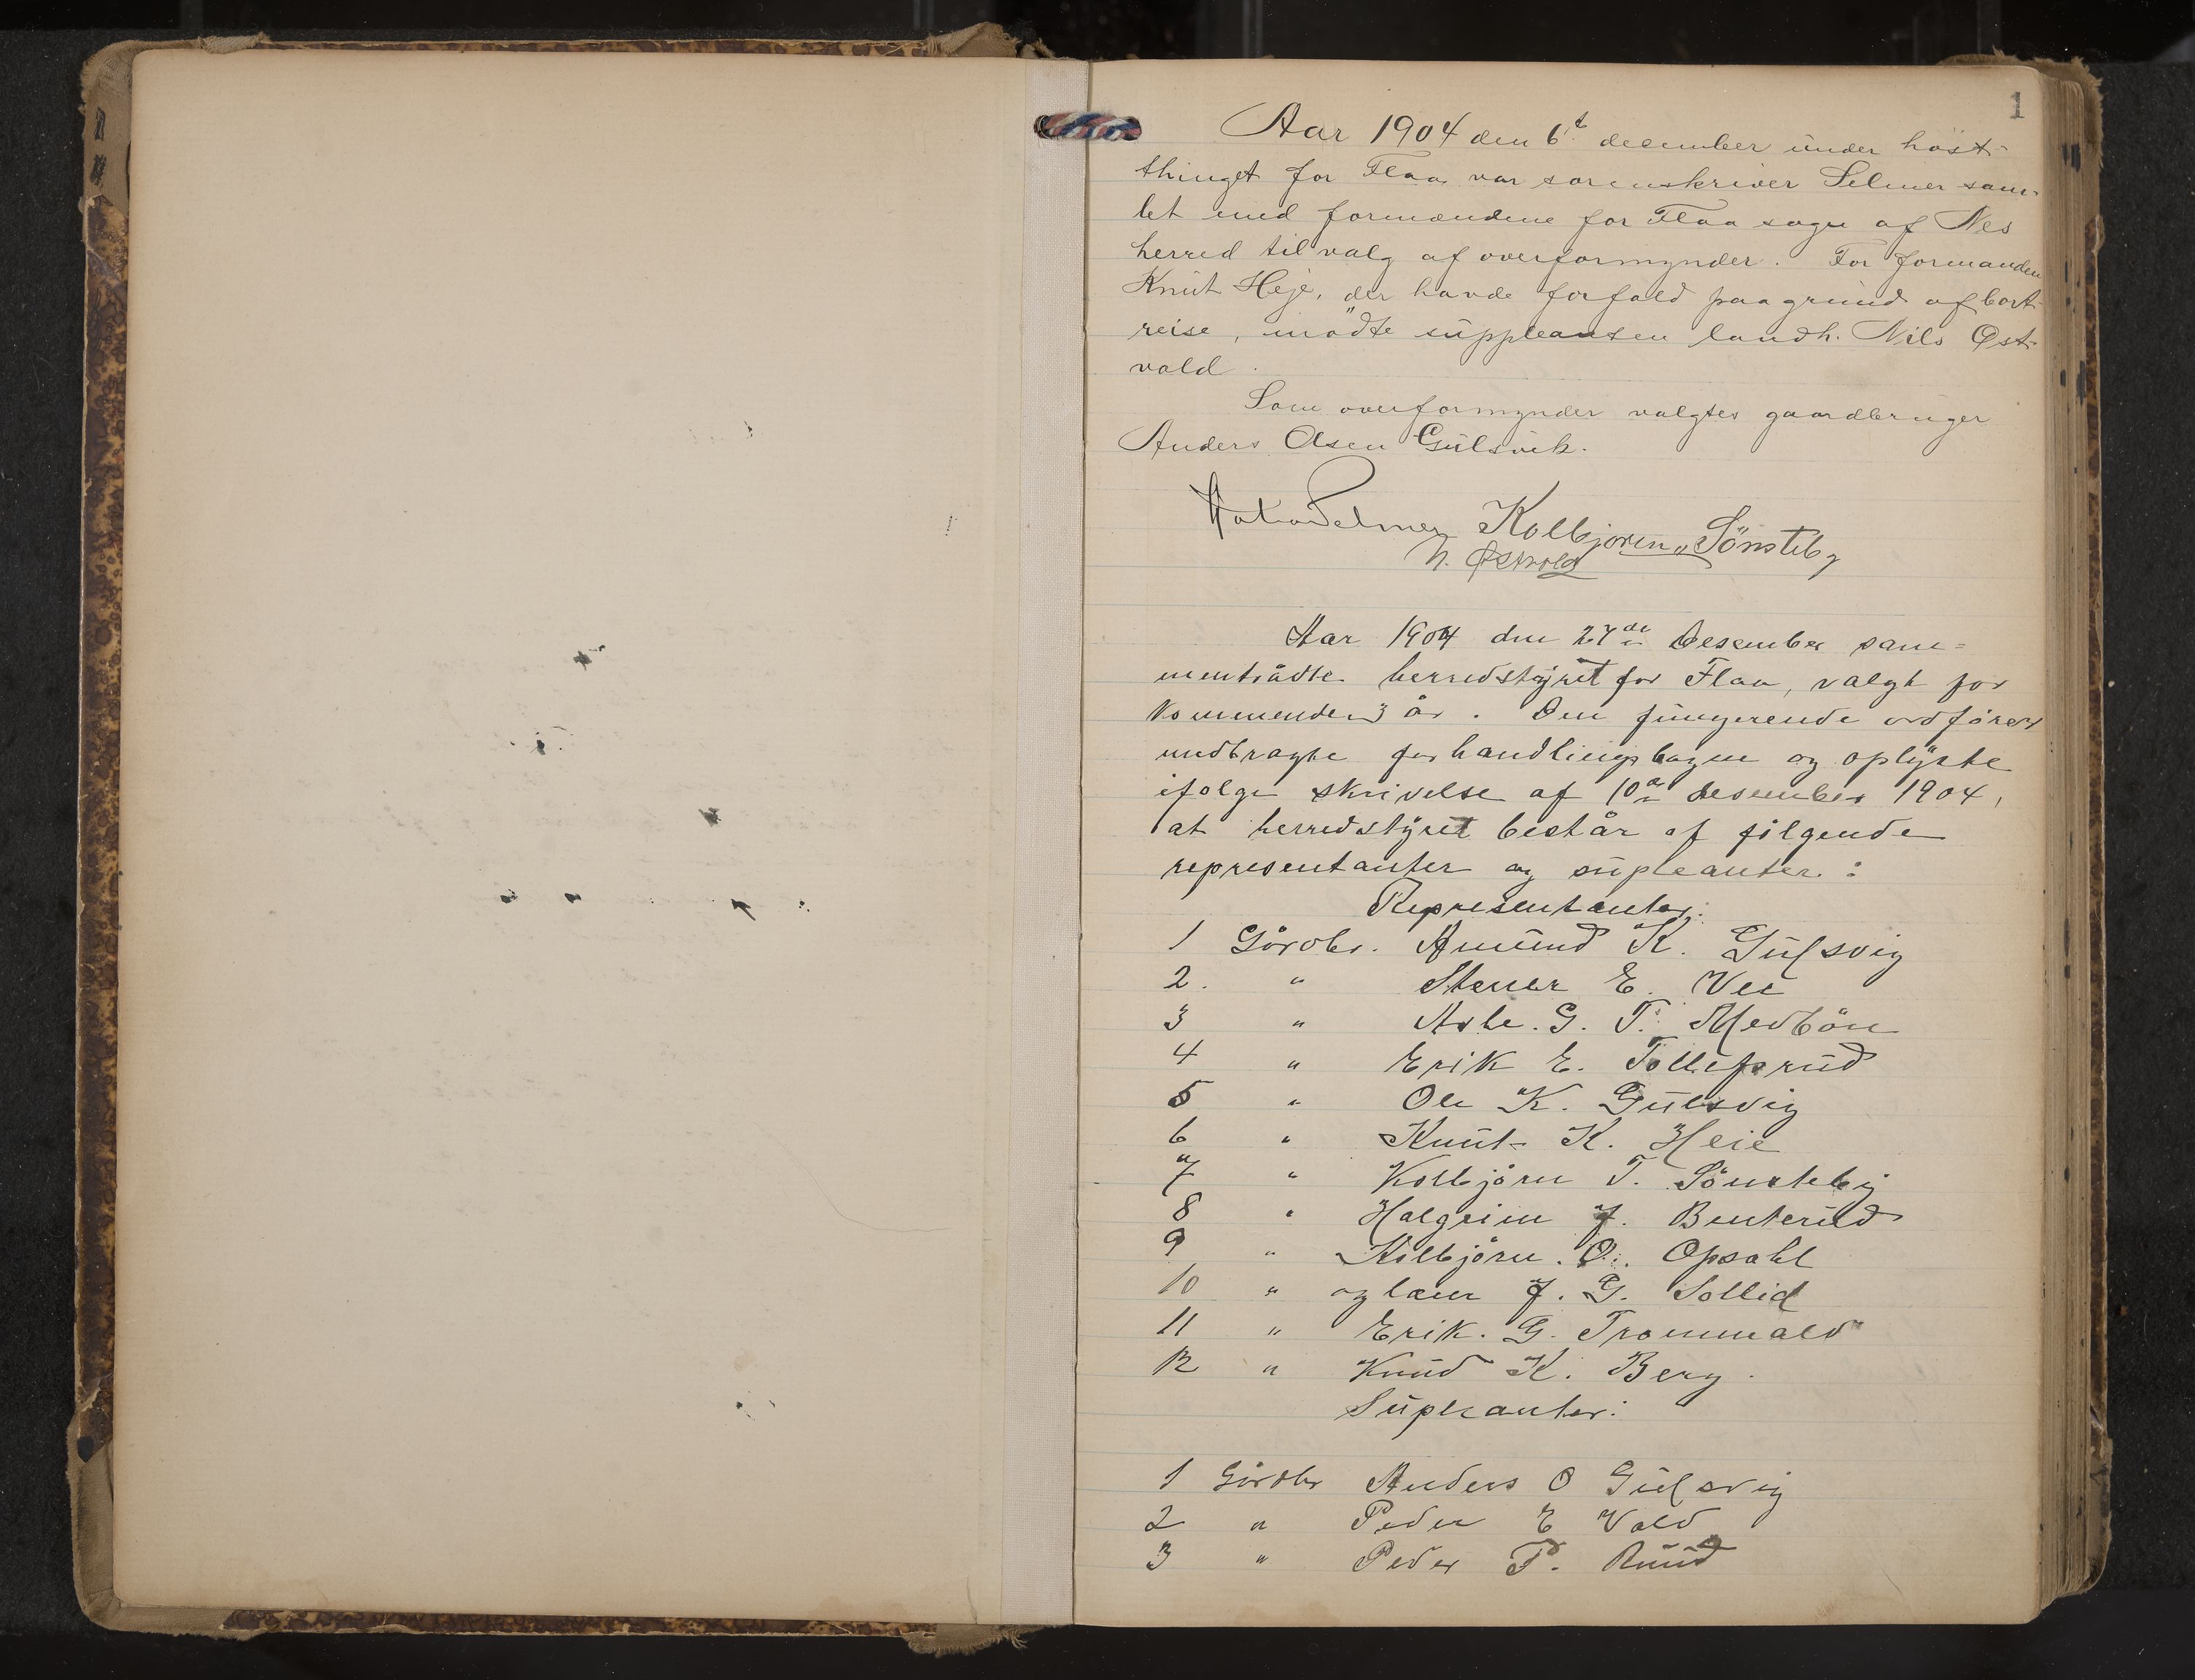 1
Aar 1904 den 6t december under höst-
thinget for Flaa var sorenskriver Selmer sam-
let med formændene for Flaa sogn af Nes
herred til valg af overformynder. For formanden
Knut Heje, der havde forfald paa grund af bort-
reise, mödte suppleanten landh. Nils Øst-
vold.
Som overformynder valgtes gaardbruger
Anders Olsen Gulsvik.
Selmer Kolbjören Sönsteby
N. Østvold
Aar 1904 den 27de desember sam=
mentrådte herredstyret for Flaa, valgt for
kommende 3 år. Den fungerende ordförer
fremlagde forhandlingsbogen og oplyste
ifölge skrivelse af 10de desember 1904,
at herredstyret består af fölgende
representanter og supleanter:
Representanter:
1 Gårdbr. Amund K. Gulsvig
2. " Stener E. Vee
3 " Asle. G. T. Medbön
4 " Erik E. Tollefsrud
5 " Ole K. Gulsvig
6 " Knut K. Heie
7 " Kolbjörn T. Sönsteby
8 " Halgrim J. Benterud
9 " Kolbjörn. O. Opsahl
10 " og lærer J. G. Sollid
11 " Erik. G. Trommald
12 " Knud K. Berg.
Supleanter:
1 Gårdbr Anders O Gulsvig
2 " Peder E Vold
3 " Peder P. Ruud